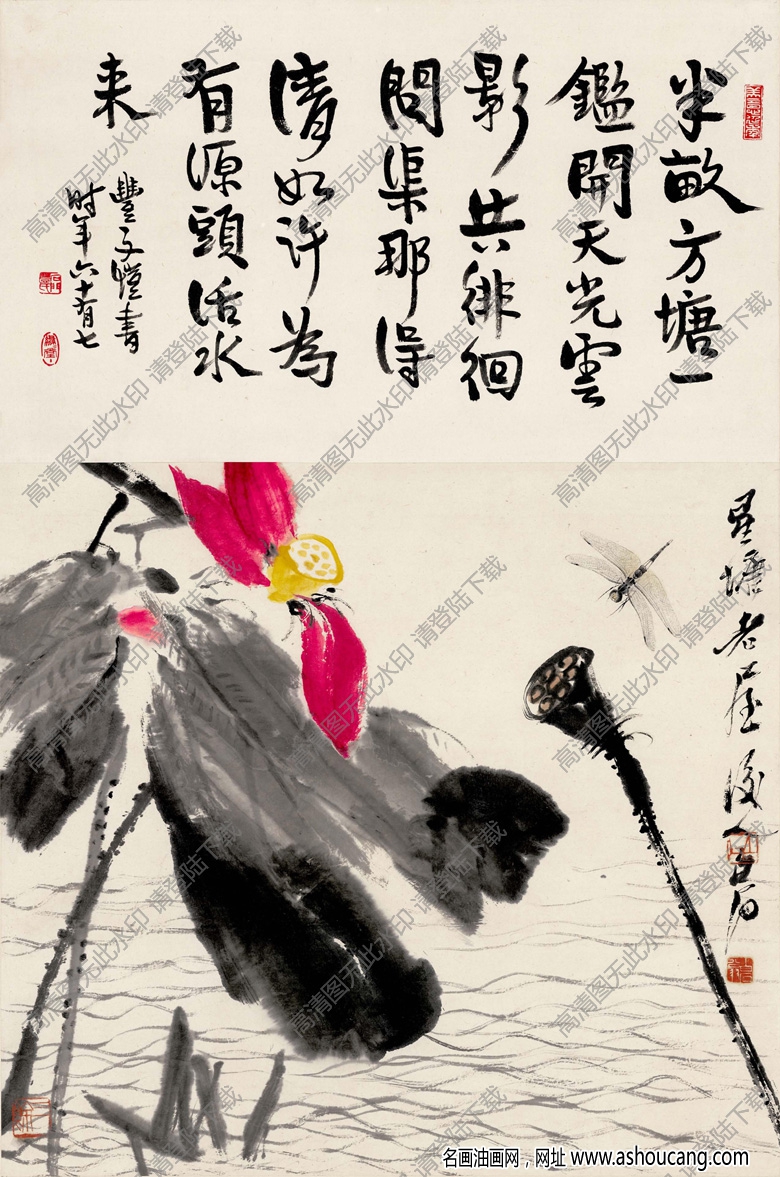 半畝方塘一
鑑開天光雲
影共徘徊
問渠那得
清如许為
有源頭活水
来
豐子愷書
时年六十有七
星塘老屋後人白石
高清图无此水印 请登陆下载
名画油画网，网址 www.ashoucang.com